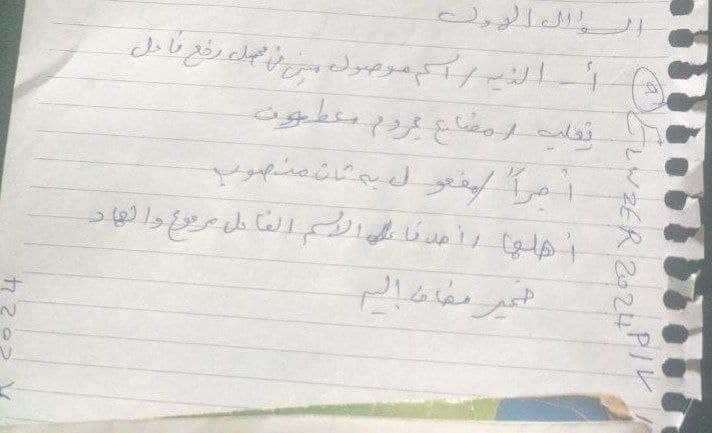 السؤال الاول
أ- الذين / اسم موصول مبني في محل رفع فاعل
يغلب / مضارع مجزوم معطوف
أجراً / مفعول به ثان منصوب
أهلها / الاسم الفاعل مرفوع والهاء
ضمير مضاف إليه
2024